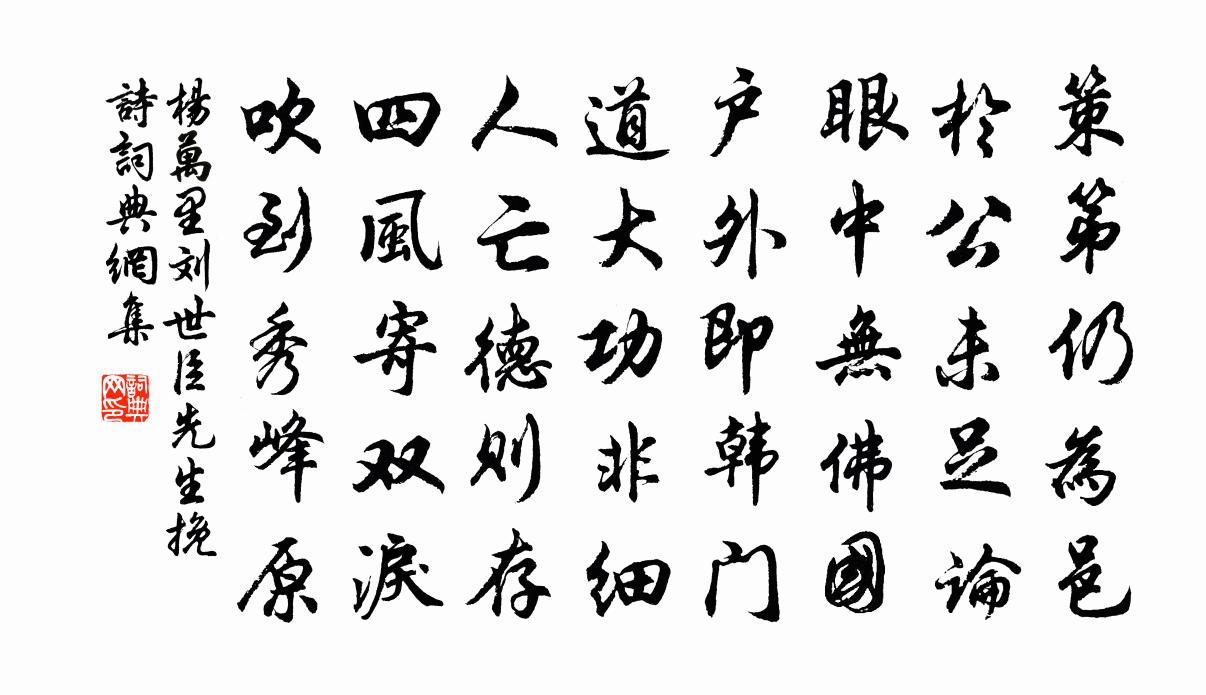 策第仍為邑
於公未足論
眼中無佛國
户外即韩门
道大功非细
人亡德则存
四風寄双淚
吹到秀峰原
楊萬里刘世臣先生挽
詩詞典網集
詞典网印